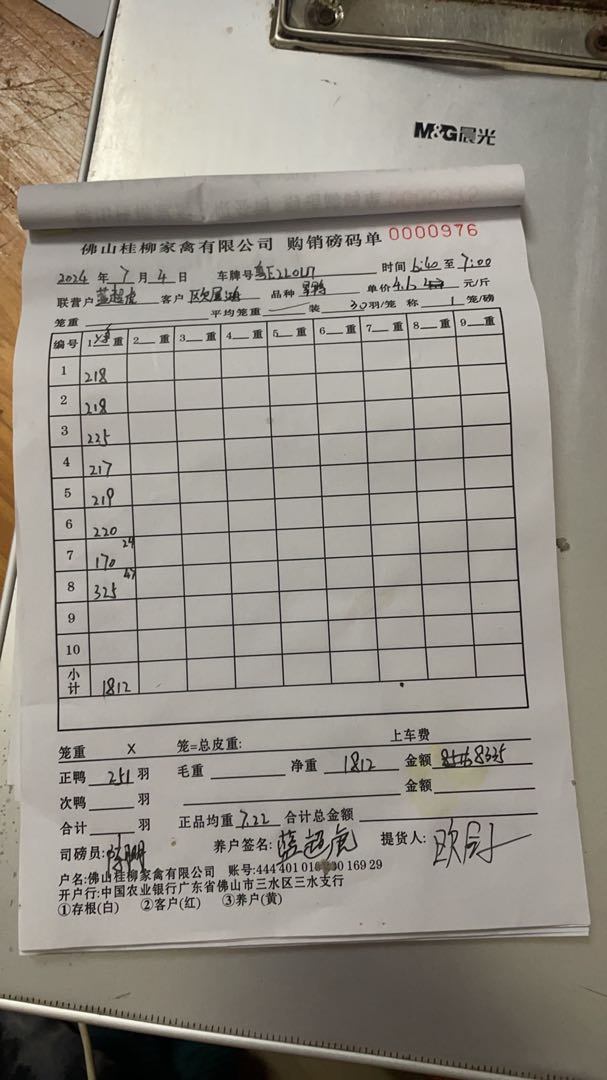 M&G晨光
佛山桂柳家禽有限公司 购销磅码单 0000976
2024 年 7 月 4 日 车牌号 粤E2L017 时间 6:40 至 7:00
联营户 蓝超虎 客户 品种 单价 4.6 元/斤
笼重 平均笼重 装 30 羽/笼 称 1 笼/磅
编号 1 重 2 重 3 重 4 重 5 重 6 重 7 重 8 重 9 重
1 218
2 218
3 225
4 217
5 219
6 220
7 170 24
8 325 47
9
10
小计 1812
笼重 X 笼=总皮重: 上车费
正鸭 251 羽 毛重 净重 1812 金额 8325
次鸭 羽 金额
合计 羽 正品均重 7.22 合计总金额
司磅员: 养户签名: 蓝超虎 提货人:
户名:佛山桂柳家禽有限公司 账号:444 401 018 169 29
开户行:中国农业银行广东省佛山市三水区三水支行
①存根(白) ②客户(红) ③养户(黄)